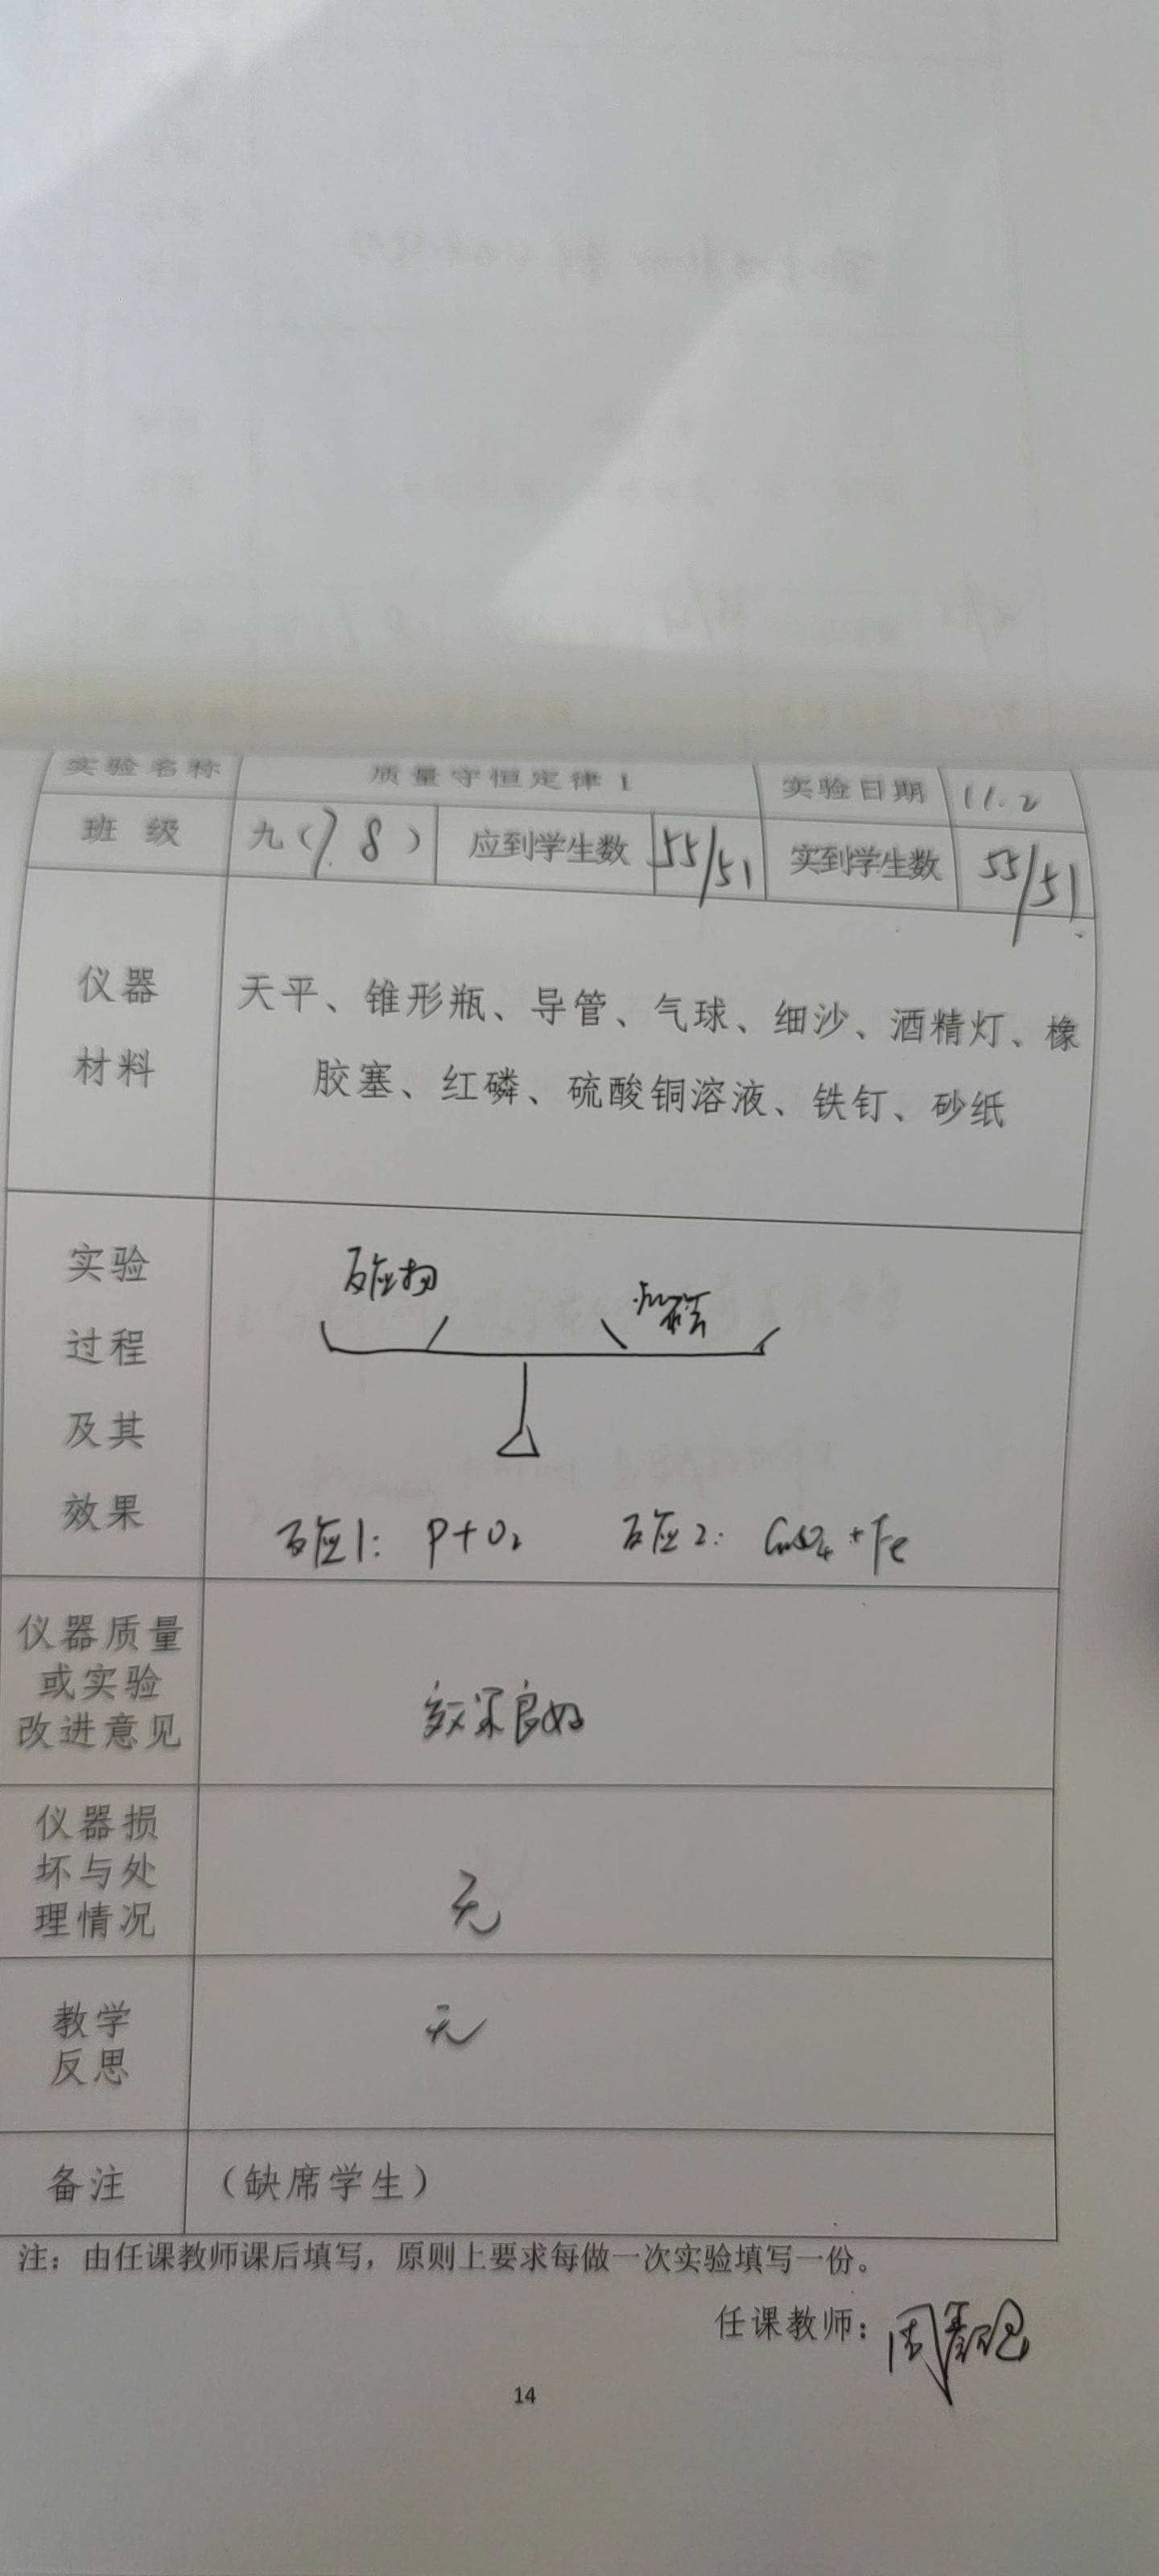 实验名称 质量守恒定律1 实验日期 11.2
班 级 九(7.8) 应到学生数 55/51 实到学生数 55/51
仪器
材料
天平、锥形瓶、导管、气球、细沙、酒精灯、橡
胶塞、红磷、硫酸铜溶液、铁钉、砂纸
实验
过程
及其
效果
反应物
反应1: P+O₂ 反应2: CuSO₄+Fe
仪器质量
或实验
改进意见
效果良好
仪器损
坏与处
理情况
无
教学
反思
无
备注 (缺席学生)
注：由任课教师课后填写，原则上要求每做一次实验填写一份。
任课教师：周
14